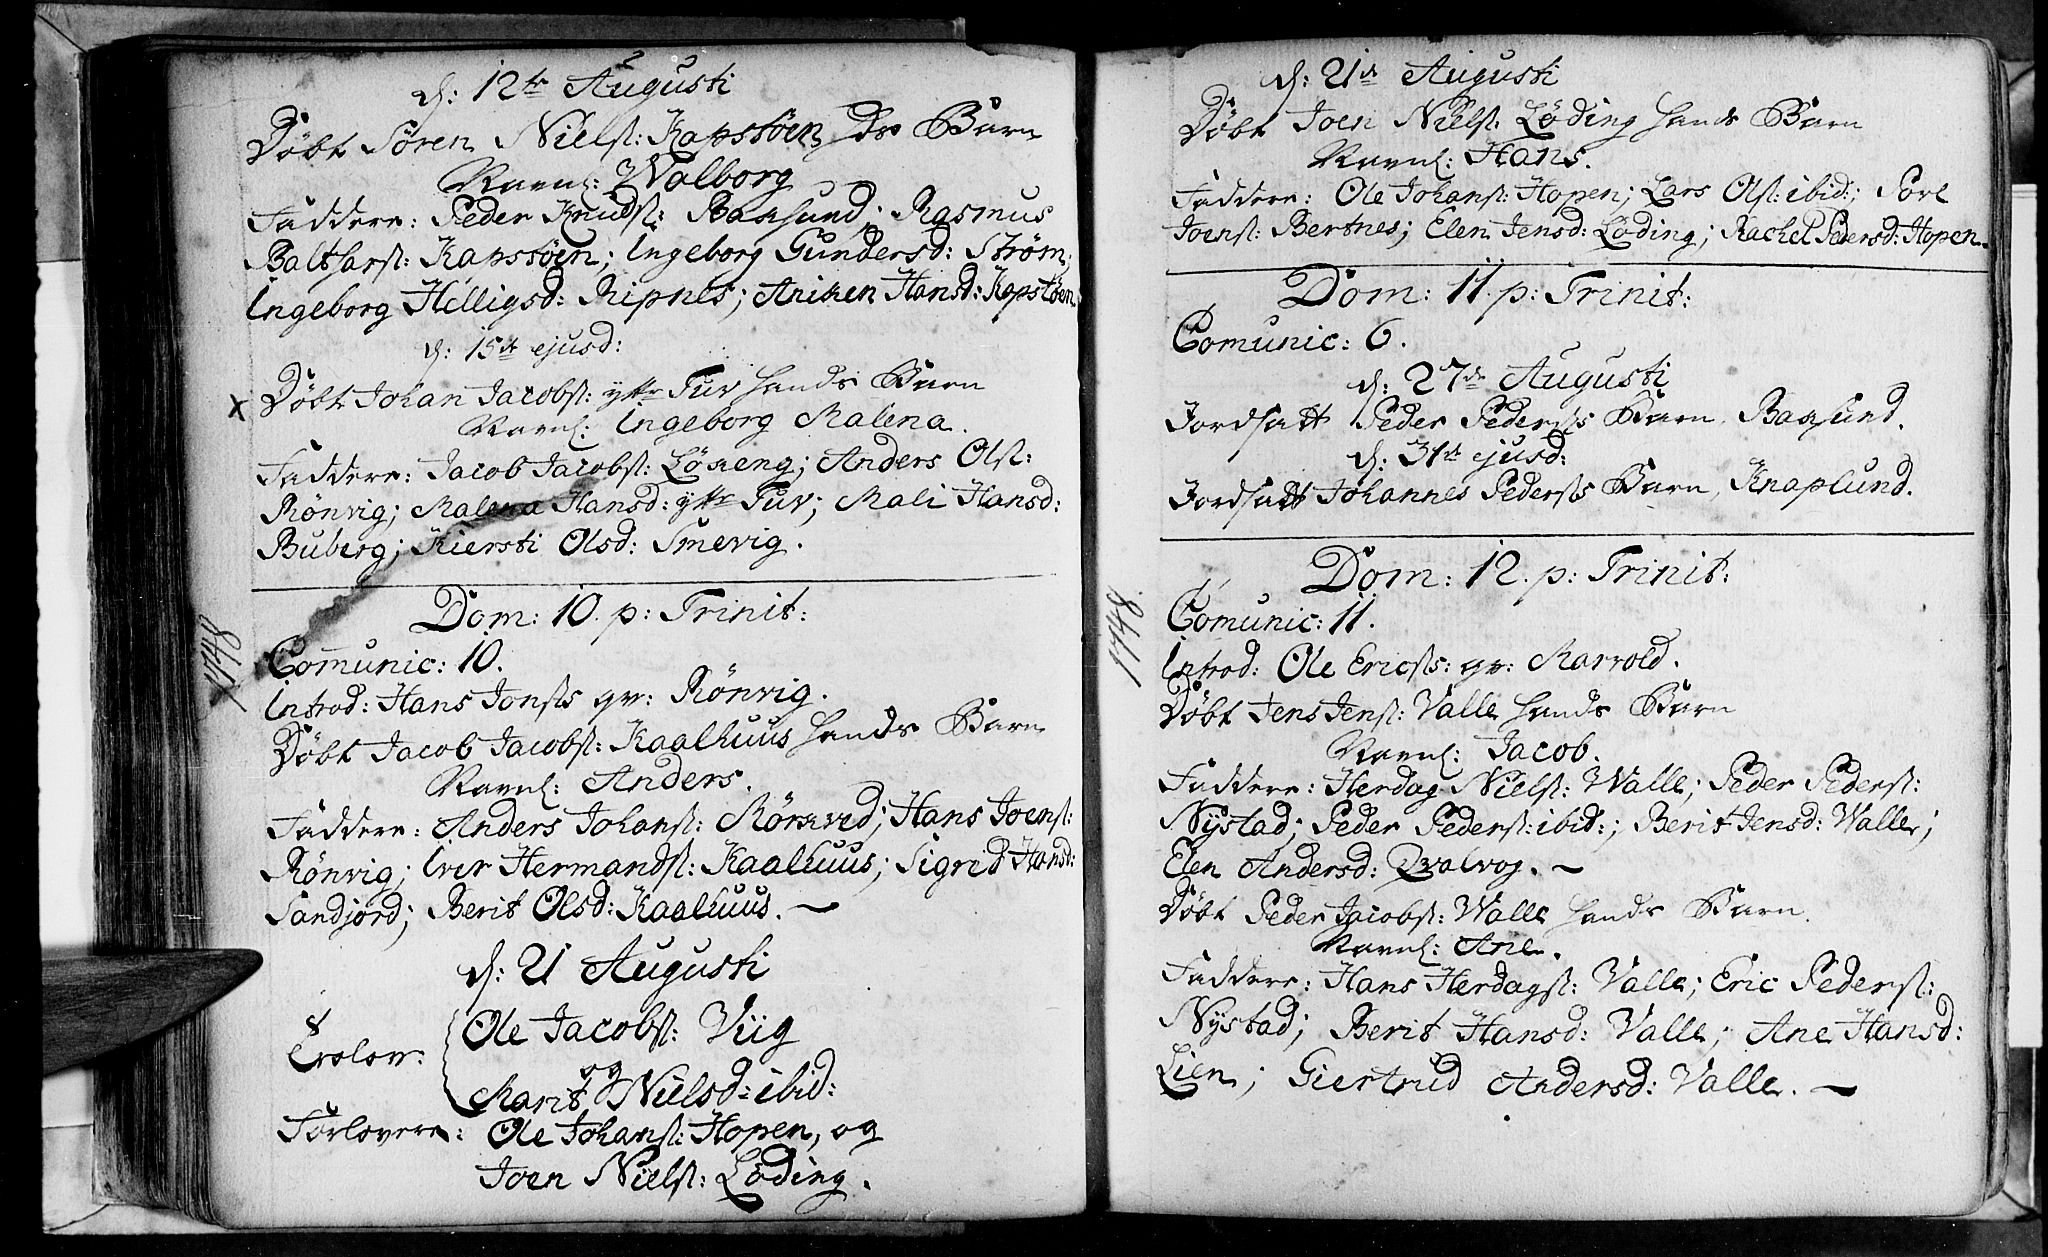 d: 12te Augusti
Döbt Sören Nielsß: Kapstöen ds Barn
Navnl: Walborg
Faddere: Peder Knudß: Baxsund; Rasmus
Baltsarß: Kapstöen; Ingeborg Gundersd: Ström;
Ingeborg Helligsd: Ripnes; Aniken Hansd: Kapstöen
d: 15de ejusd:
x Döbt Johan Jacobß: yttr Tuv hands Barn
Navnl: Ingeborg Malena.
Faddere: Jacob Jacobß: Lökeng; Anders Olß:
Rönvig; Malena Hansd: yttr Tuv; Mali Hansd:
Buberg; Kiersti Olsd: Smevig.
1748
Dom: 10. p: Trinit:
Comunic: 10.
Introd: Hans Jonßs qv: Rönvig.
Döbt Jacob Jacobß: Kaalhuus hands Barn
Navnl: Anders.
Faddere: Anders Johanß: Rörkved; Hans Joenß:
Rönvig; Iver Hermandß: Kaalhuus; Sigrid Hansd:
Sandjord; Berit Olsd: Kaalhuus. —
d: 21 Augusti
8
Trolov: Ole Jacobß: Viig
og
Marit Nielsd: ibid:
Forlovere: Ole Johanß: Hopen, og
Joen Nielß: Löding.
d: 21de Augusti
Döbt Joen Nielß: Löding hands Barn
Navnl: Hans.
Faddere: Ole Johanß: Hopen; Lars Olß: ibid:; Porl
Joenß: Bertnes; Elen Jensd: Löding; Rachel Pedersd: Hopen.
Dom: 11. p: Trinit:
Comunic: 6.
d: 27de Augusti
Jordsatt Peder Pederßs Barn, Baxsund.
d: 31te ejusd:
Jordsatt Johannes Pederßs Barn, Knaplund.
1748
Dom: 12. p: Trinit:
Comunic: 11.
Introd: Ole Ericßs: qv: Marvold.
Döbt Jens Jenß: Valle hands Barn
Navnl: Jacob.
Faddere: Herdag Nielß: Walle; Peder Pederß:
Nystad; Peder Pederß: ibid:; Berit Jensd: Walle;
Elen Andersd: Qvalvog. —
Döbt Peder Jacobß: Walle hands Barn.
Navnl: Ane.
Faddere: Hans Herdagß: Valle; Eric Pederß:
Nystad; Berit Hansd: Valle; Ane Hansd:
Lien; Giertrud Andersd: Valle. —